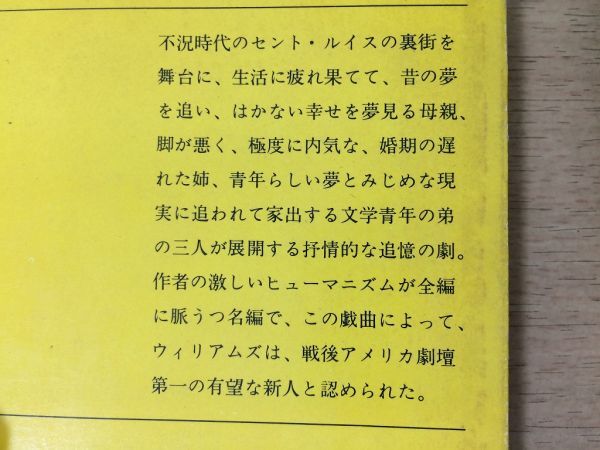 不況時代のセント・ルイスの裏街を
舞台に、生活に疲れ果てて、昔の夢
を追い、はかない幸せを夢見る母親、
脚が悪く、極度に内気な、婚期の遅
れた姉、青年らしい夢とみじめな現
実に追われて家出する文学青年の弟
の三人が展開する抒情的な追憶の劇。
作者の激しいヒューマニズムが全編
に脈うつ名編で、この戯曲によって、
ウィリアムズは、戦後アメリカ劇壇
第一の有望な新人と認められた。